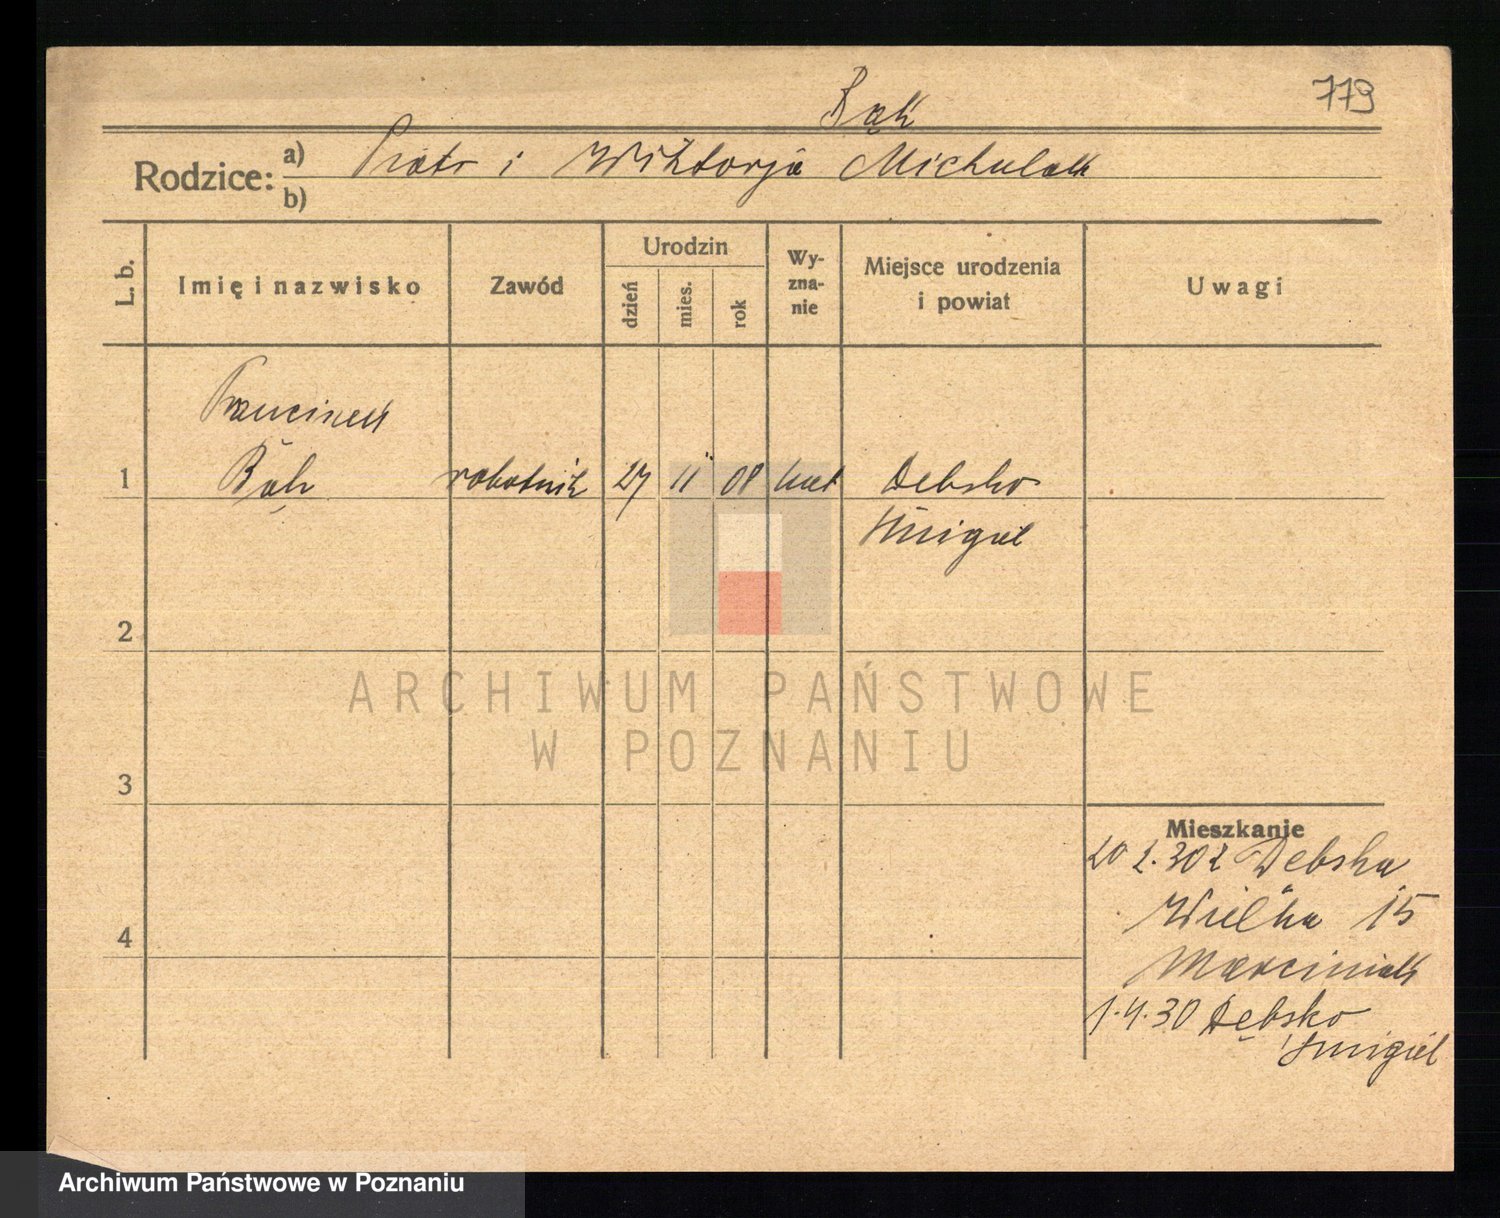 779
Bąk
Rodzice: a) Piotr i Wiktorja Michalak
b)
L. b. Imię i nazwisko Zawód Urodzin dzień mies. rok Wy-zna-nie Miejsce urodzenia i powiat Uwagi
Franciszek
1 Bąk robotnik 27 11 08 kat Dębsko
Śmigiel
2
ARCHIWUM PAŃSTWOWE
W POZNANIU
3
Mieszkanie
20 2. 30 z Dębska
Wielka 15
4
Marciniak
1.4.30 Dębsko
Śmigiel
Archiwum Państwowe w Poznaniu